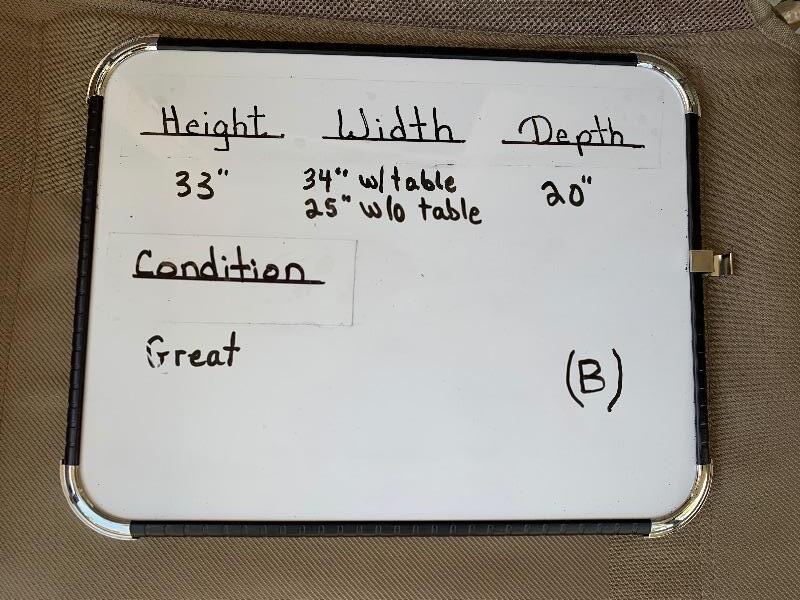 Height Width Depth
33" 34" w/table 20"
25" w/o table
Condition
Great
(B)